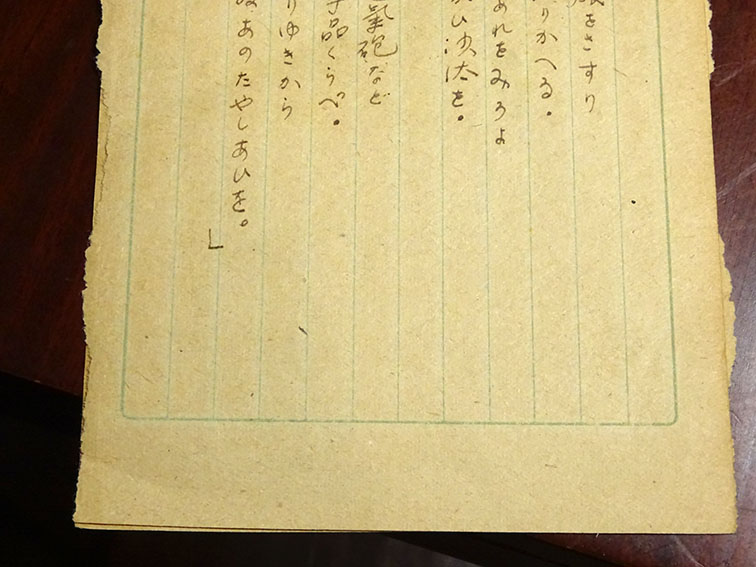 をさすり
りかへる。
あれをみろよ
ひ沙汰を。
氣砲など
手品くらべ。
りゆきから
あのたやしあひを。
」